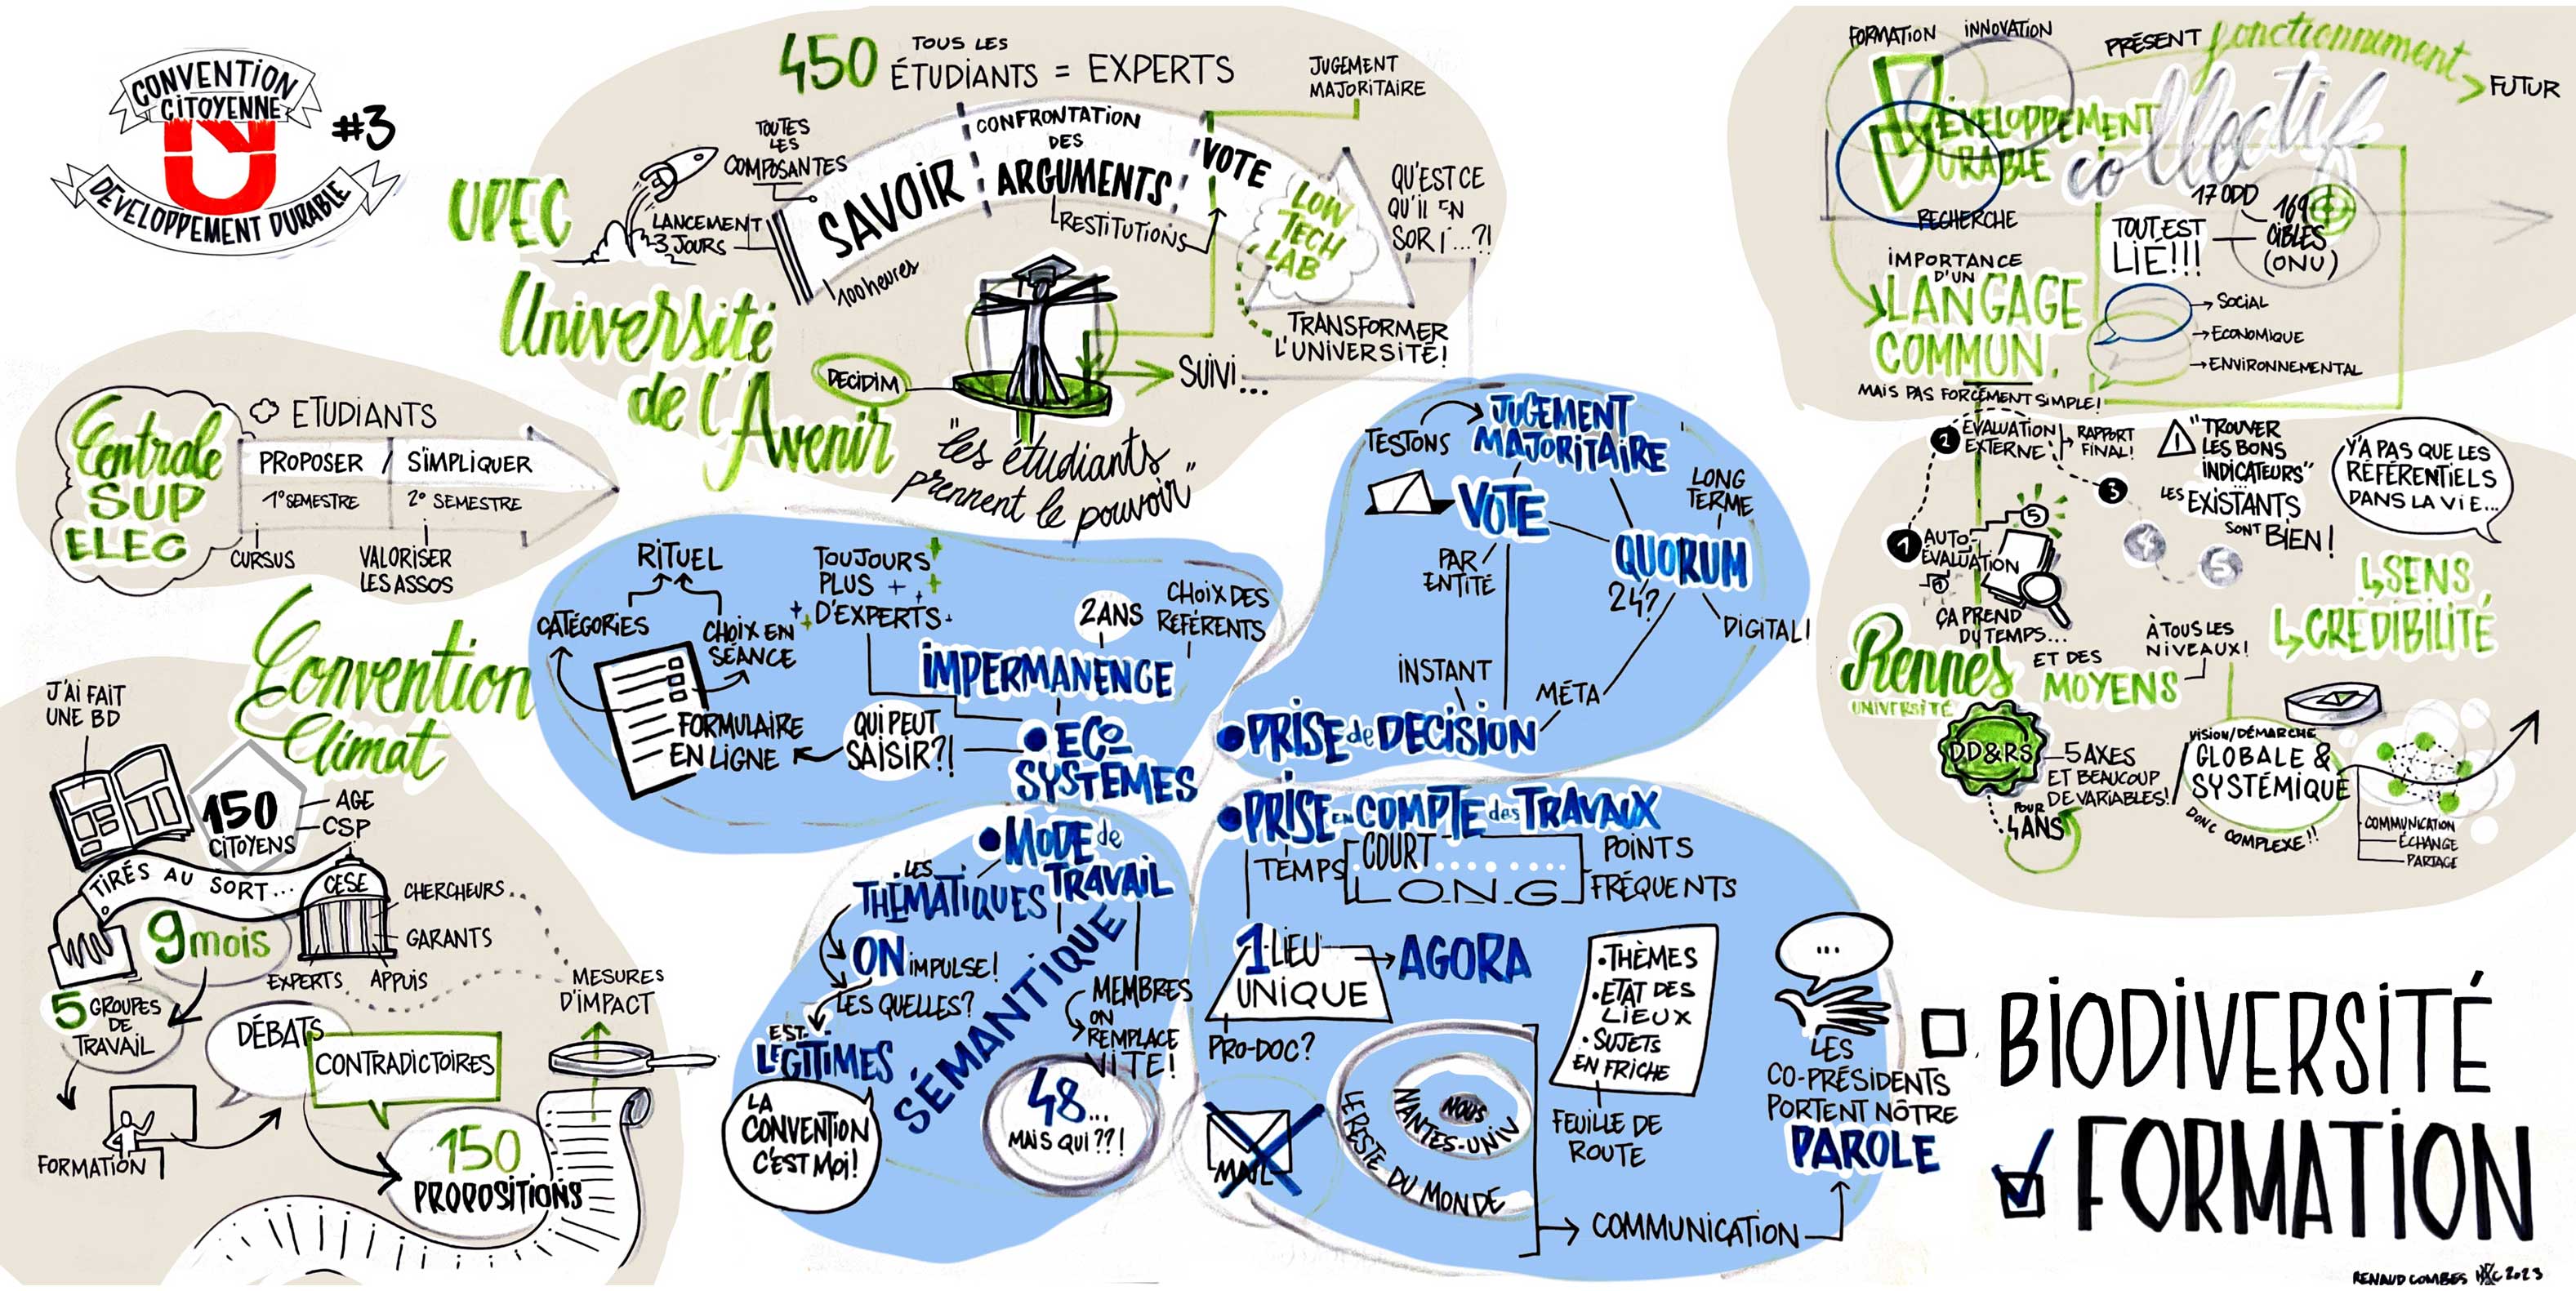 CONVENTION
CITOYENNE
NU
DÉVELOPPEMENT DURABLE
#3
UPEC
Université
de l'Avenir
450 TOUS LES
ÉTUDIANTS = EXPERTS
JUGEMENT
MAJORITAIRE
TOUTES
LES
COMPOSANTES
LANCEMENT
3 JOURS
SAVOIR
100 heures
CONFRONTATION
DES
ARGUMENTS!
RESTITUTIONS
VOTE
LOW
TECH
LAB
QU'EST CE
QU'IL EN
SORT...?!
TRANSFORMER
L'UNIVERSITÉ!
DECIDIM
SUIVI...
"les étudiants
prennent le pouvoir"
Centrale
SUP
ELEC
ETUDIANTS
PROPOSER / S'IMPLIQUER
1° SEMESTRE
2° SEMESTRE
CURSUS
VALORISER
LES ASSOS
Convention
Climat
J'AI FAIT
UNE BD
150
CITOYENS
AGE
CSP
TIRÉS AU SORT...
CESE
CHERCHEURS...
GARANTS
EXPERTS
APPUIS
9 mois
5 GROUPES
DE
TRAVAIL
FORMATION
DÉBATS
CONTRADICTOIRES
150
PROPOSITIONS
MESURES
D'IMPACT
RITUEL
CATÉGORIES
CHOIX EN
SÉANCE
TOUJOURS
PLUS +
D'EXPERTS
2 ANS
CHOIX DES
RÉFÉRENTS
IMPERMANENCE
FORMULAIRE
EN LIGNE
QUI PEUT
SAISIR?!
• ECO
SYSTÈMES
TESTONS
JUGEMENT
MAJORITAIRE
VOTE
LONG
TERME
PAR
ENTITÉ
QUORUM
24?
DIGITAL!
INSTANT
MÉTA
• PRISE de DECISION
• MODE de
TRAVAIL
LES
THÉMATIQUES
ON IMPULSE!
LES QUELLES?
EST-
LÉGITIMES
LA
CONVENTION
C'EST MOI!
SÉMANTIQUE
MEMBRES
ON
REMPLACE
VITE!
48...
MAIS QUI??!
• PRISE EN COMPTE des TRAVAUX
TEMPS
COURT
LONG
POINTS
FRÉQUENTS
1 LIEU
UNIQUE
AGORA
PRO-DOC?
MAIL
NOUS
NANTES-UNIV
LE RESTE DU MONDE
• THÈMES
• ETAT DES
LIEUX
• SUJETS
EN FRICHE
FEUILLE DE
ROUTE
COMMUNICATION
...
LES
CO-PRÉSIDENTS
PORTENT NÔTRE
PAROLE
FORMATION
INNOVATION
RECHERCHE
DÉVELOPPEMENT
DURABLE
PRÉSENT
fonctionnement
collectif
FUTUR
17 ODD
169
CIBLES
(ONU)
TOUT EST
LIÉ!!!
IMPORTANCE
D'UN
LANGAGE
COMMUN.
MAIS PAS FORCÉMENT SIMPLE!
SOCIAL
ECONOMIQUE
ENVIRONNEMENTAL
1 AUTO-
ÉVALUATION
2 ÉVALUATION
EXTERNE
RAPPORT
FINAL!
3
4
5
5
ÇA PREND
DU TEMPS...
! "TROUVER
LES BONS
INDICATEURS"
LES EXISTANTS
SONT BIEN!
Y'A PAS QUE LES
RÉFÉRENTIELS
DANS LA VIE...
SENS
CRÉDIBILITÉ
Rennes
UNIVERSITÉ
ET DES
MOYENS
À TOUS LES
NIVEAUX!
DD&RS
5 AXES
ET BEAUCOUP
DE VARIABLES!
POUR
4 ANS
VISION/DÉMARCHE
GLOBALE &
SYSTÉMIQUE
DONC COMPLEXE!!
COMMUNICATION
ÉCHANGE
PARTAGE
BIODIVERSITÉ
FORMATION
RENAUD COMBES 2023